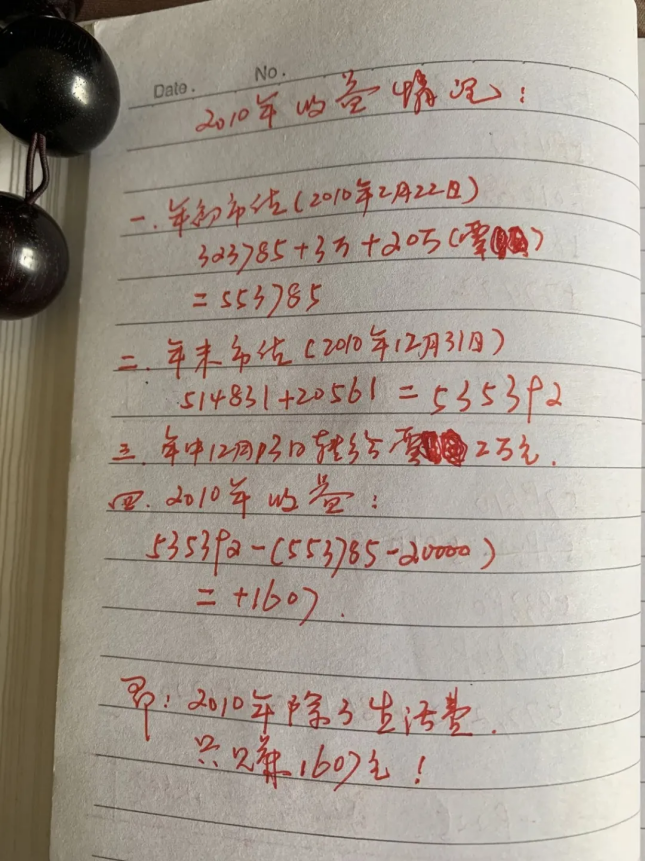 Date. No.
2010年收益情况：
一. 年初市值(2010年2月22日)
323785+3万+20万(覃)
=553785
二. 年末市值(2010年12月31日)
514831+20561=535392
三. 年中12月13日转给覃 2万元.
四. 2010年收益：
535392-(553785-20000)
=+1607.
即：2010年除了生活费.
只 1607元！